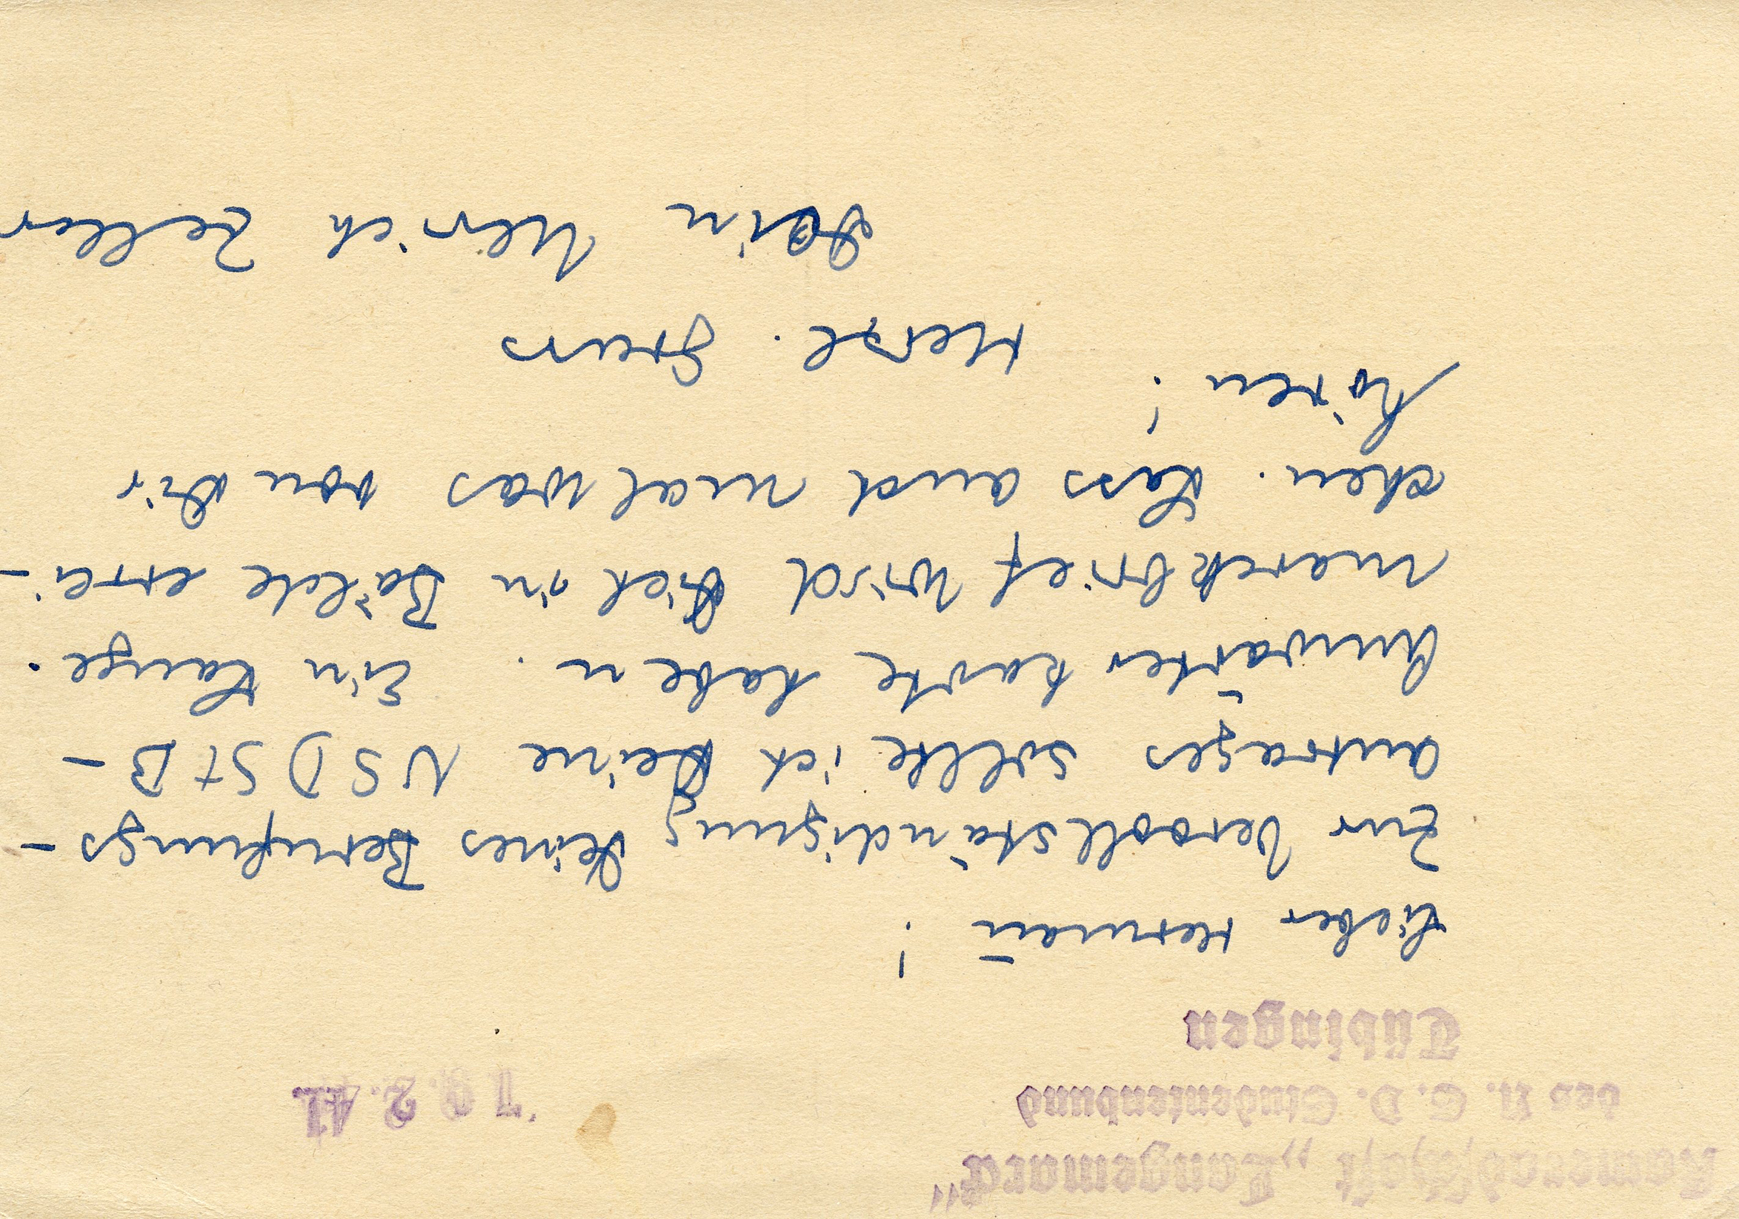 Kameradschaft „Langemarck“
des N. S. D. Studentenbund
Tübingen
10. 2. 41
Lieber Hermañ!
Zur Vervollständigung Deines Berufungs-
antrages sollte ich Deine NSDStB-
Anwärterkarte haben. Ein Lange-
marckbrief wird Dich in Bälde errei-
chen. Lass auch mal was von Dir
hören!
Herzl. Gruss
Dein Ulrich Zeller